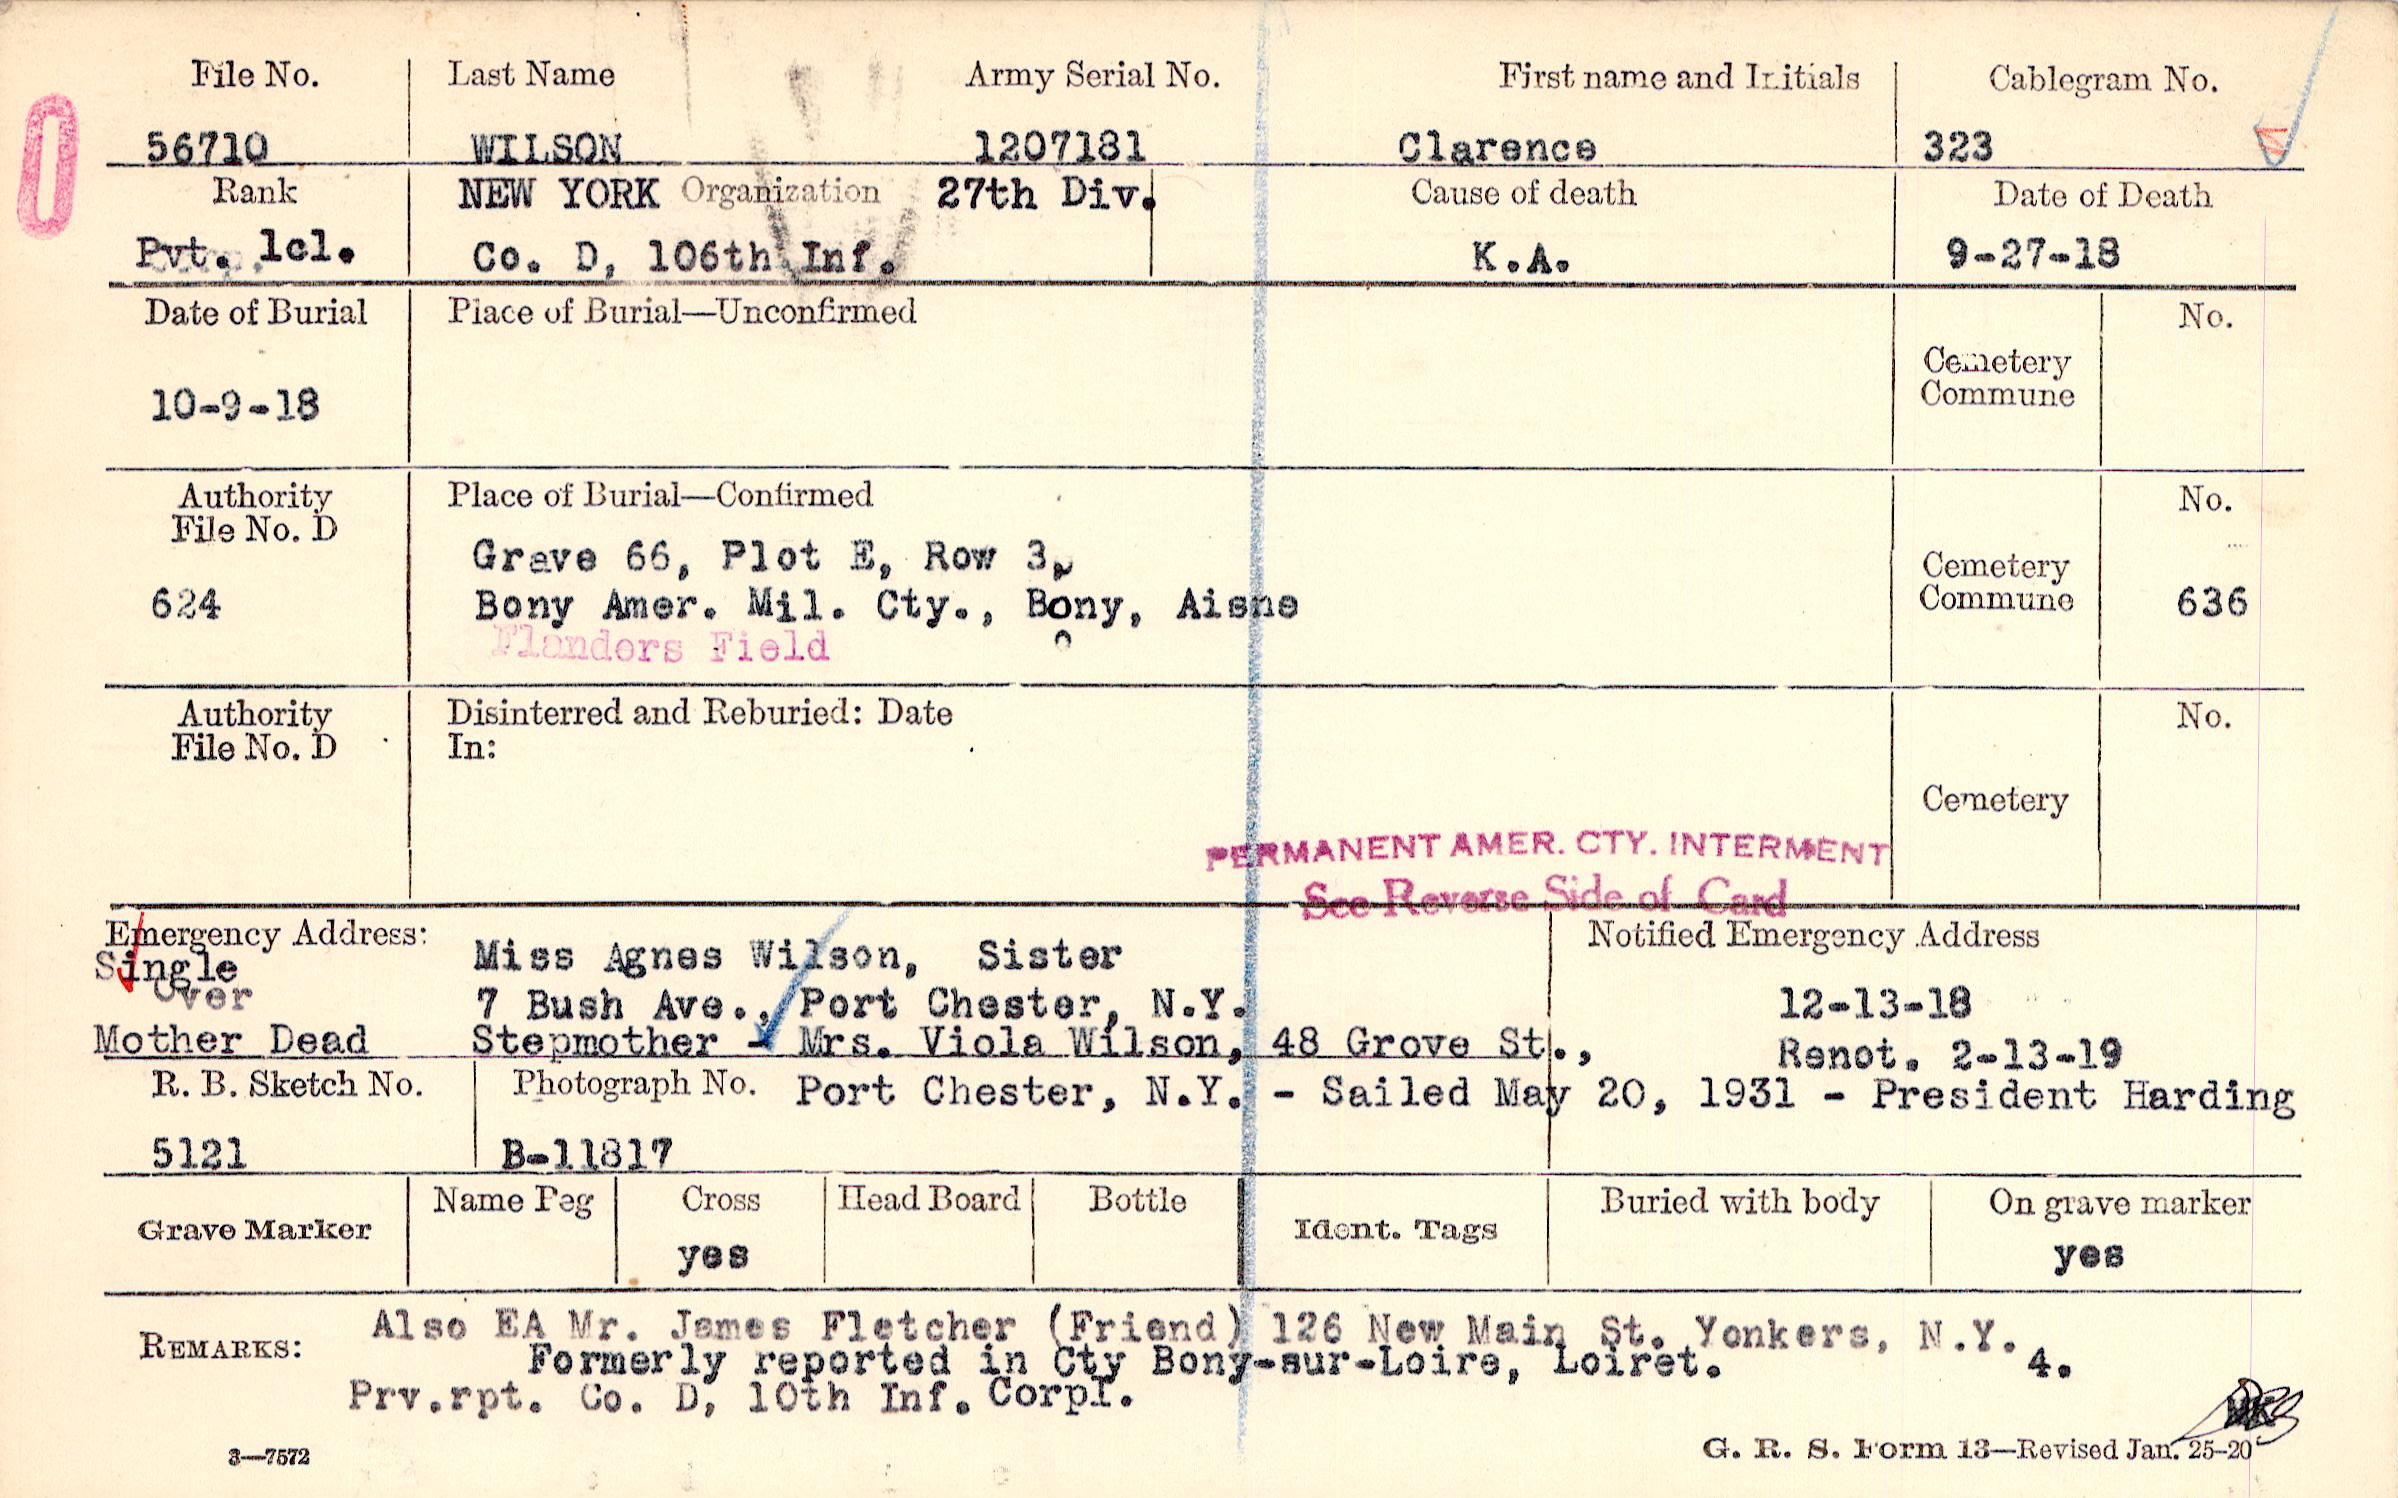 File No. Last Name Army Serial No. First name and Initials Cablegram No.
56710 WILSON 1207181 Clarence 323
Rank NEW YORK Organization 27th Div. Cause of death Date of Death
Pvt. 1cl. Co. D, 106th Inf. K.A. 9-27-18
Date of Burial Place of Burial—Unconfirmed No.
Cemetery
Commune
10-9-18
Authority Place of Burial—Confirmed No.
File No. D
Grave 66, Plot E, Row 3,
Cemetery
624 Bony Amer. Mil. Cty., Bony, Aisne Commune 636
Flanders Field
Authority Disinterred and Reburied: Date No.
File No. D In:
Cemetery
PERMANENT AMER. CTY. INTERMENT
See Reverse Side of Card
Emergency Address: Notified Emergency Address
Single Miss Agnes Wilson, Sister
Over 7 Bush Ave., Port Chester, N.Y. 12-13-18
Mother Dead Stepmother - Mrs. Viola Wilson, 48 Grove St., Renot. 2-13-19
R. B. Sketch No. Photograph No. Port Chester, N.Y. - Sailed May 20, 1931 - President Harding
5121 B-11817
Grave Marker Name Peg Cross Head Board Bottle Ident. Tags Buried with body On grave marker
yes yes
REMARKS: Also EA Mr. James Fletcher (Friend) 126 New Main St. Yonkers, N.Y.
Formerly reported in Cty Bony-sur-Loire, Loiret. 4.
Prv.rpt. Co. D, 10th Inf. Corpl.
3—7572 G. R. S. Form 13—Revised Jan. 25-20